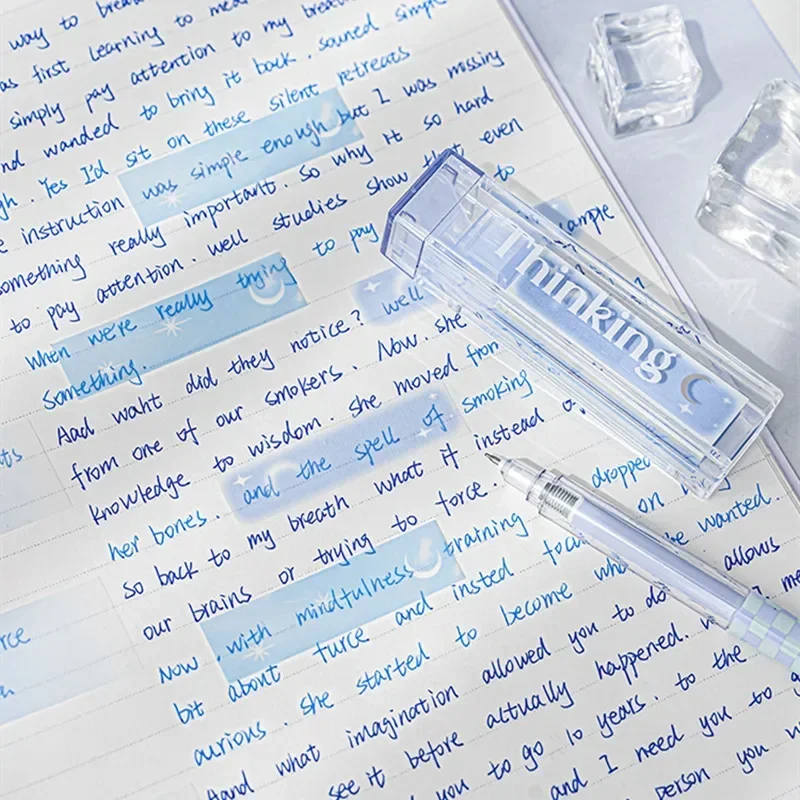 way to breath
as first learning to me
simply pay attention to my breath
nd wanded to bring it back. souned simple
gh. Yes I'd sit on these silent retreats
e instruction was simple enough but I was missing
something really important. So why it so hard
to pay attention. well studies show that even
when we're really trying to pay to
something. well ample
Aad waht did they notice?
from one of our smokers. Now. she
knowledge to wisdom. she moved from
her bones. and the spell of smoking
so back to my breath what it instead o
our brains or trying to force. dropped
Now. with mindfulness training on w
bit about furce and insted focu be wanted.
aurious. she started to become wh
Aand what imagination allowed you to do allows
see it before actually happened. w me
you to go 10 years. to the
and I need you to g
person you w
Thinking
ts
rce